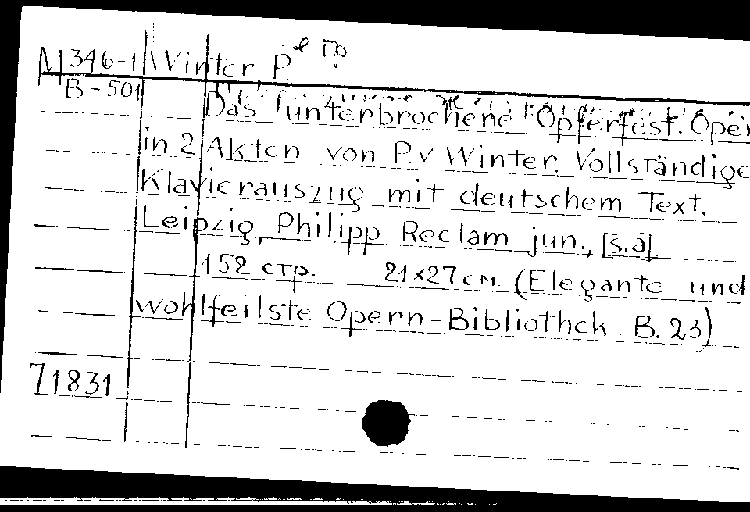 M 346-1 Winter, P.
B-501
Das unterbrochene Opferfest. Oper
in 2 Akten von P.v Winter. Vollständige
Klavierauszug mit deutschem Text.
Leipzig, Philipp Reclam jun., [s.a]
152 стр. 21x27см. (Elegante und
wohlfeilste Opern-Bibliothek B. 23)
71831